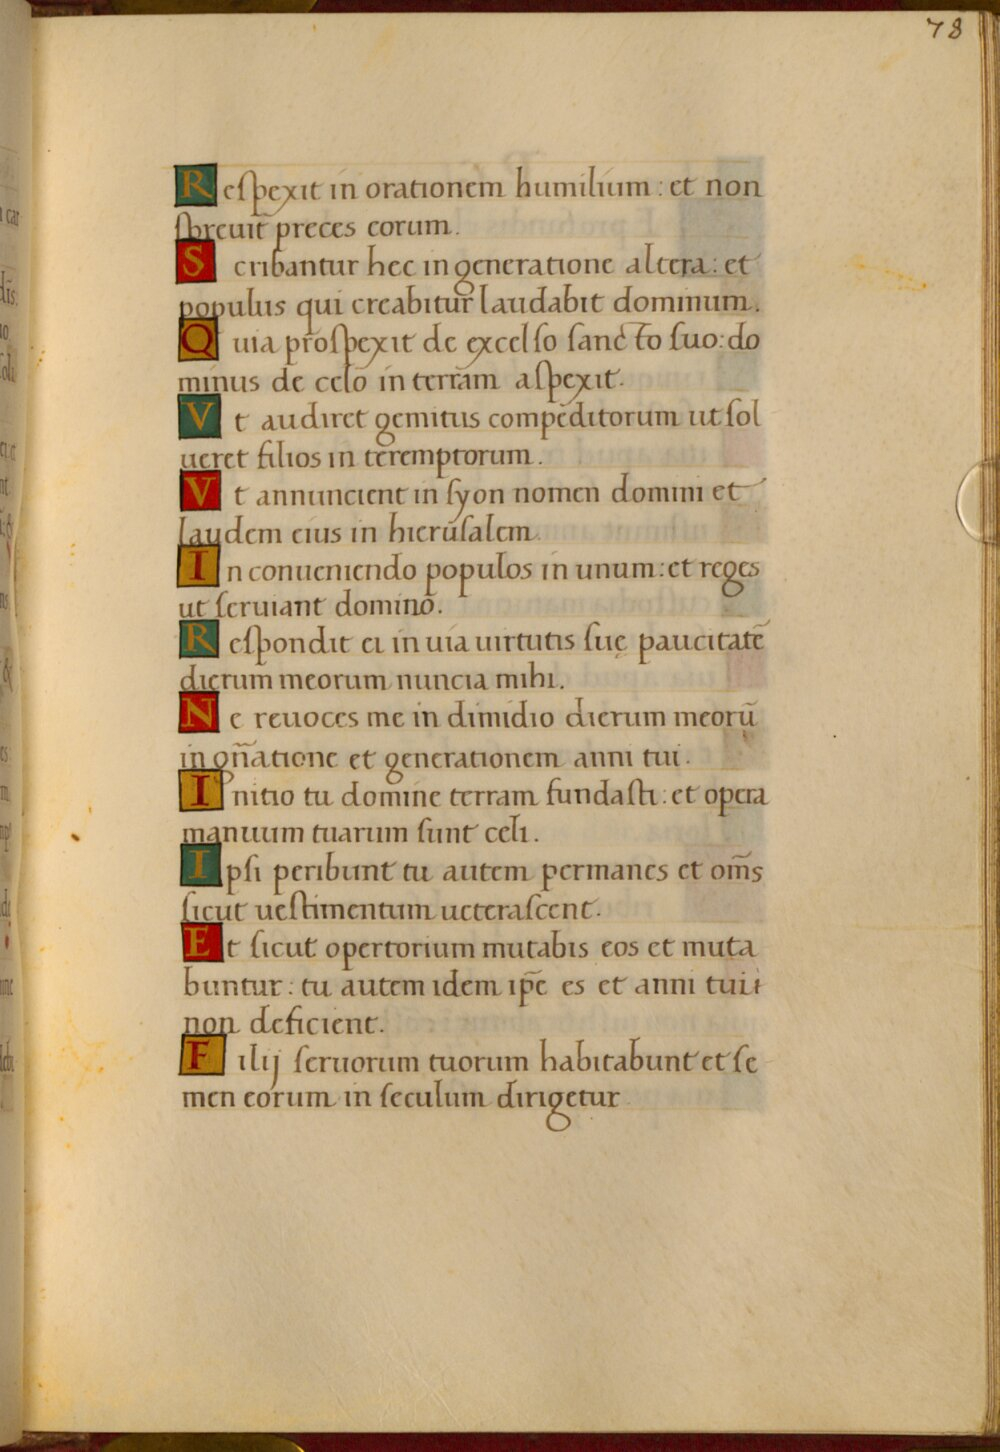 78
Respexit in orationem humilium : et non
sbreuit preces eorum.
Scribantur hec in generatione altera : et
populus qui creabitur laudabit dominum.
Quia prospexit de excelso sancto suo : do
minus de celo in terram aspexit.
Vt audiret gemitus compeditorum ut sol
ueret filios in teremptorum.
Vt annuncient in syon nomen domini et
laudem eius in hierusalem
In conueniendo populos in unum : et reges
ut seruiant domino.
Respondit ei in uia uirtutis suę paucitatē
dierum meorum nuncia mihi.
Ne reuoces me in dimidio dierum meorū
in gn̄atione et generationem anni tui.
Initio tu domine terram fundasti : et opera
manuum tuarum sunt celi.
Ipsi peribunt tu autem permanes et om̄s
sicut uestimentum ueterascent.
Et sicut opertorium mutabis eos et muta
buntur : tu autem idem ip̄e es et anni tui
non deficient.
Filij seruorum tuorum habitabunt et se
men eorum in seculum dirigetur